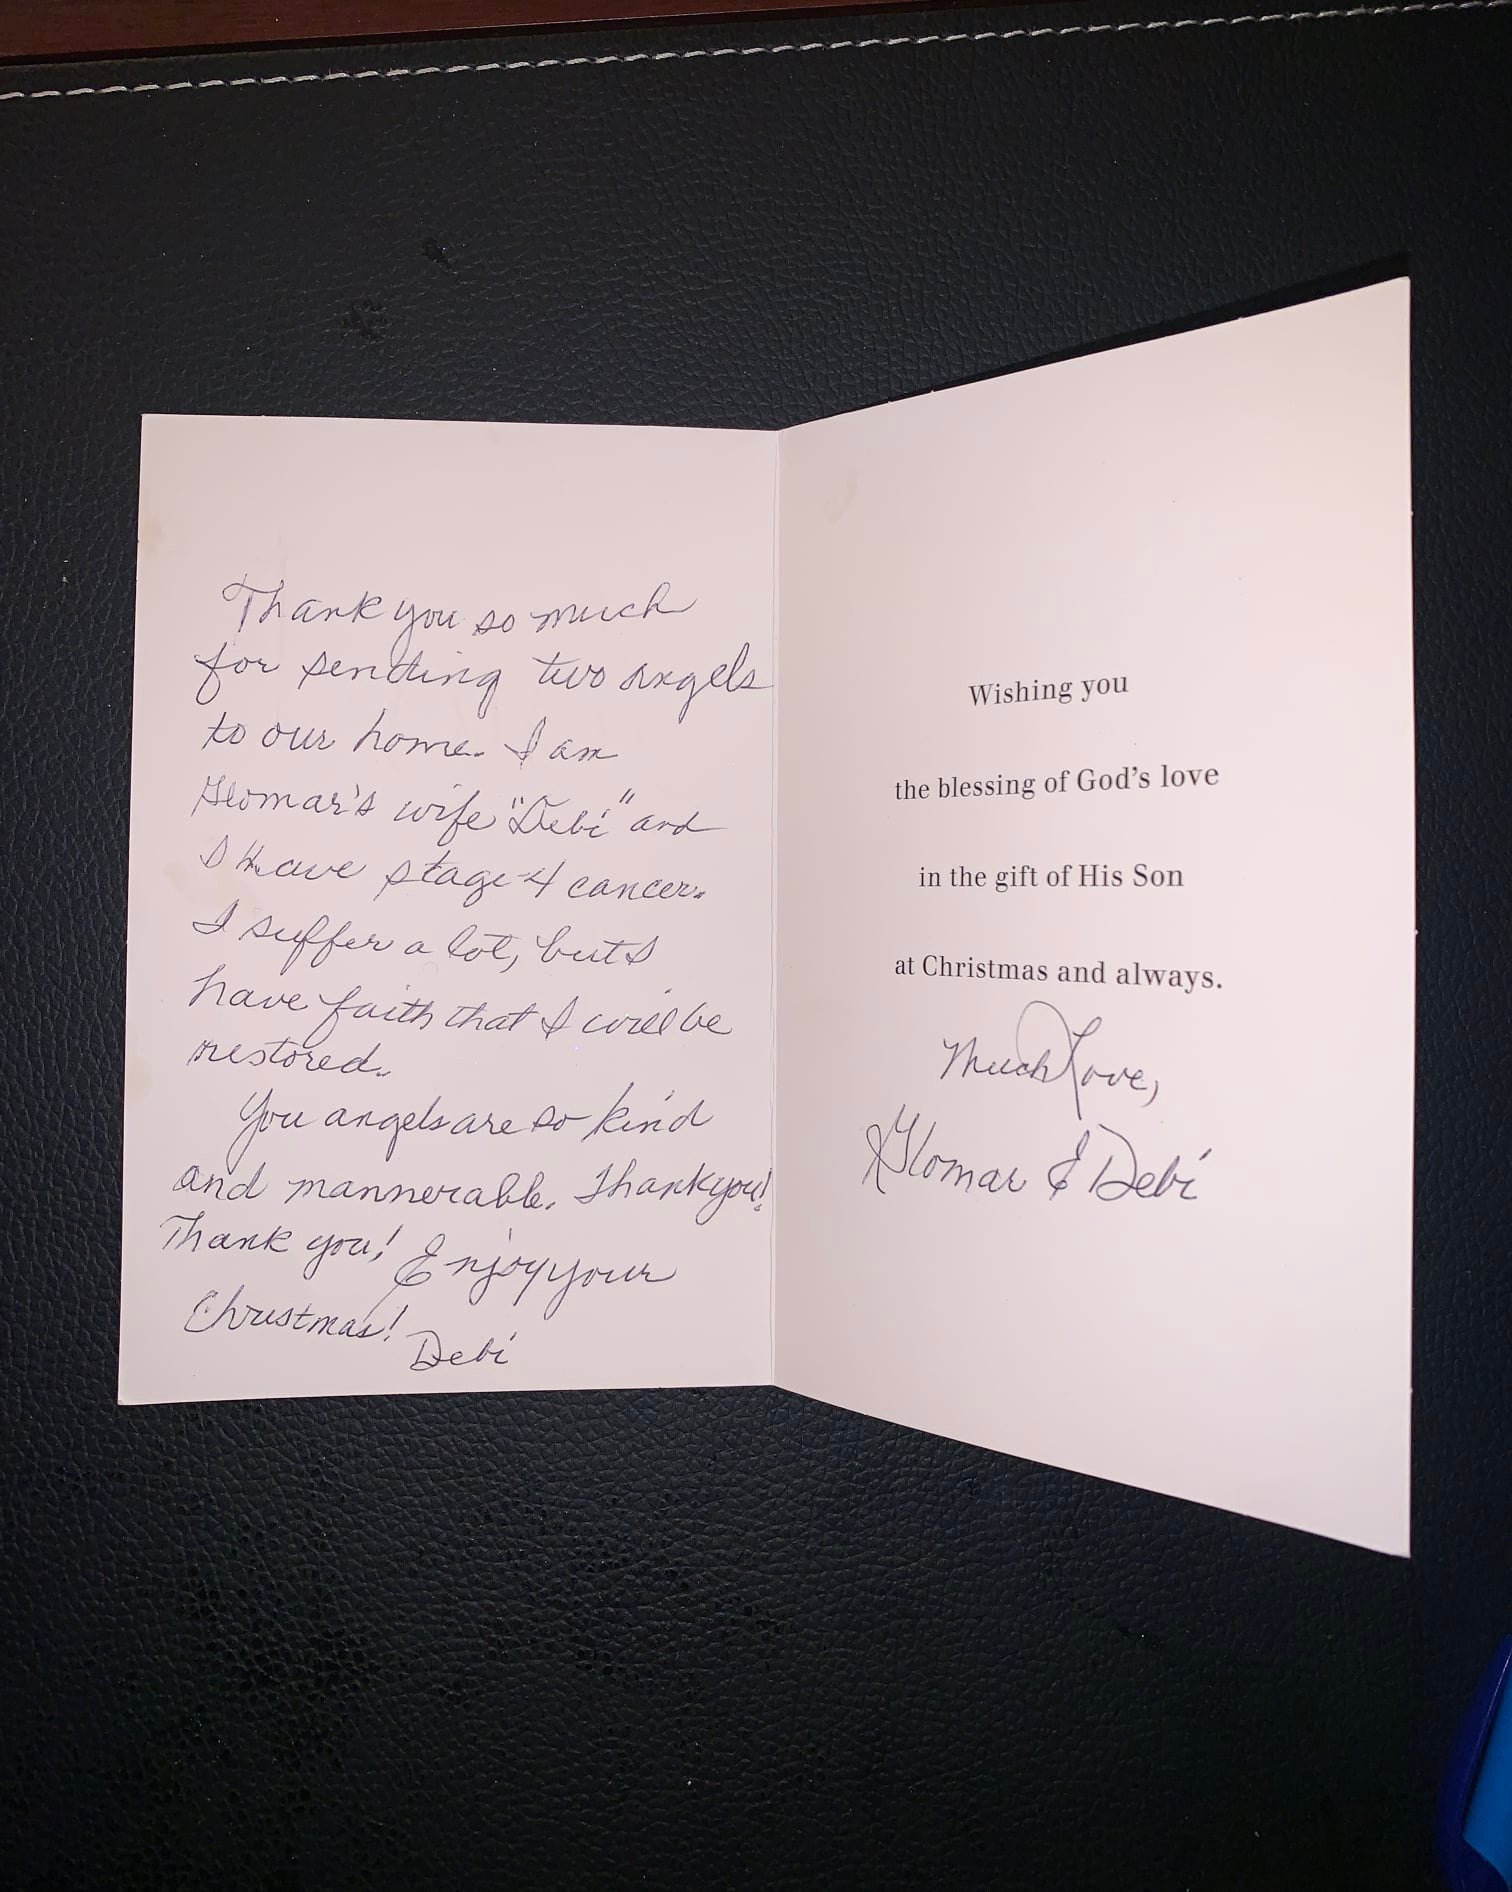 Thank you so much
for sending two angels
to our home. I am
Glomar's wife "Debi" and
I have stage 4 cancer.
I suffer a lot, but I
have faith that I will be
restored.
You angels are so kind
and mannerable. Thank you!
Thank you! Enjoy your
Christmas!
Debi
Wishing you
the blessing of God's love
in the gift of His Son
at Christmas and always.
Much Love,
Glomar & Debi